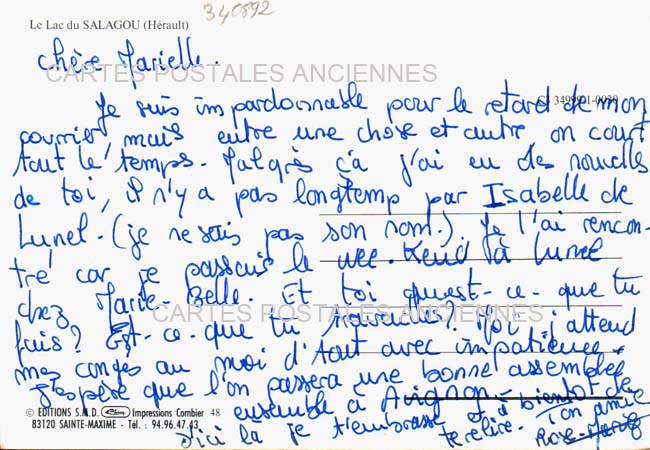 340892
Le Lac du SALAGOU (Hérault)
chère Marielle.
CARTES POSTALES ANCIENNES
Je suis impardonnable pour le retard de mon
courrier, mais entre une chose et autre, on court
tout le temps. Malgrés ça j'ai eu des nouvelles
de toi, il n'y a pas longtemp par Isabelle de
Lunel. (je ne sais pas son nom.). Je l'ai rencon-
tré car je passais le wee-Kend à Lunel
chez Marie-Belle. Et toi qu'est-ce-que tu
CARTES POSTALES ANCIENNES
fais? Est-ce-que tu travailles? Moi j'attend
mes congés au moi d'Aout avec impatience.
J'espère que l'on passera une bonne assemblée
ensemble à Avignon - bientot de
© EDITIONS S.M.D. Impressions Combier 48
83120 SAINTE-MAXIME - Tél. : 94.96.47.43
d'ici là je t'embrasse et à te relire. Ton amie
Rose-Marie